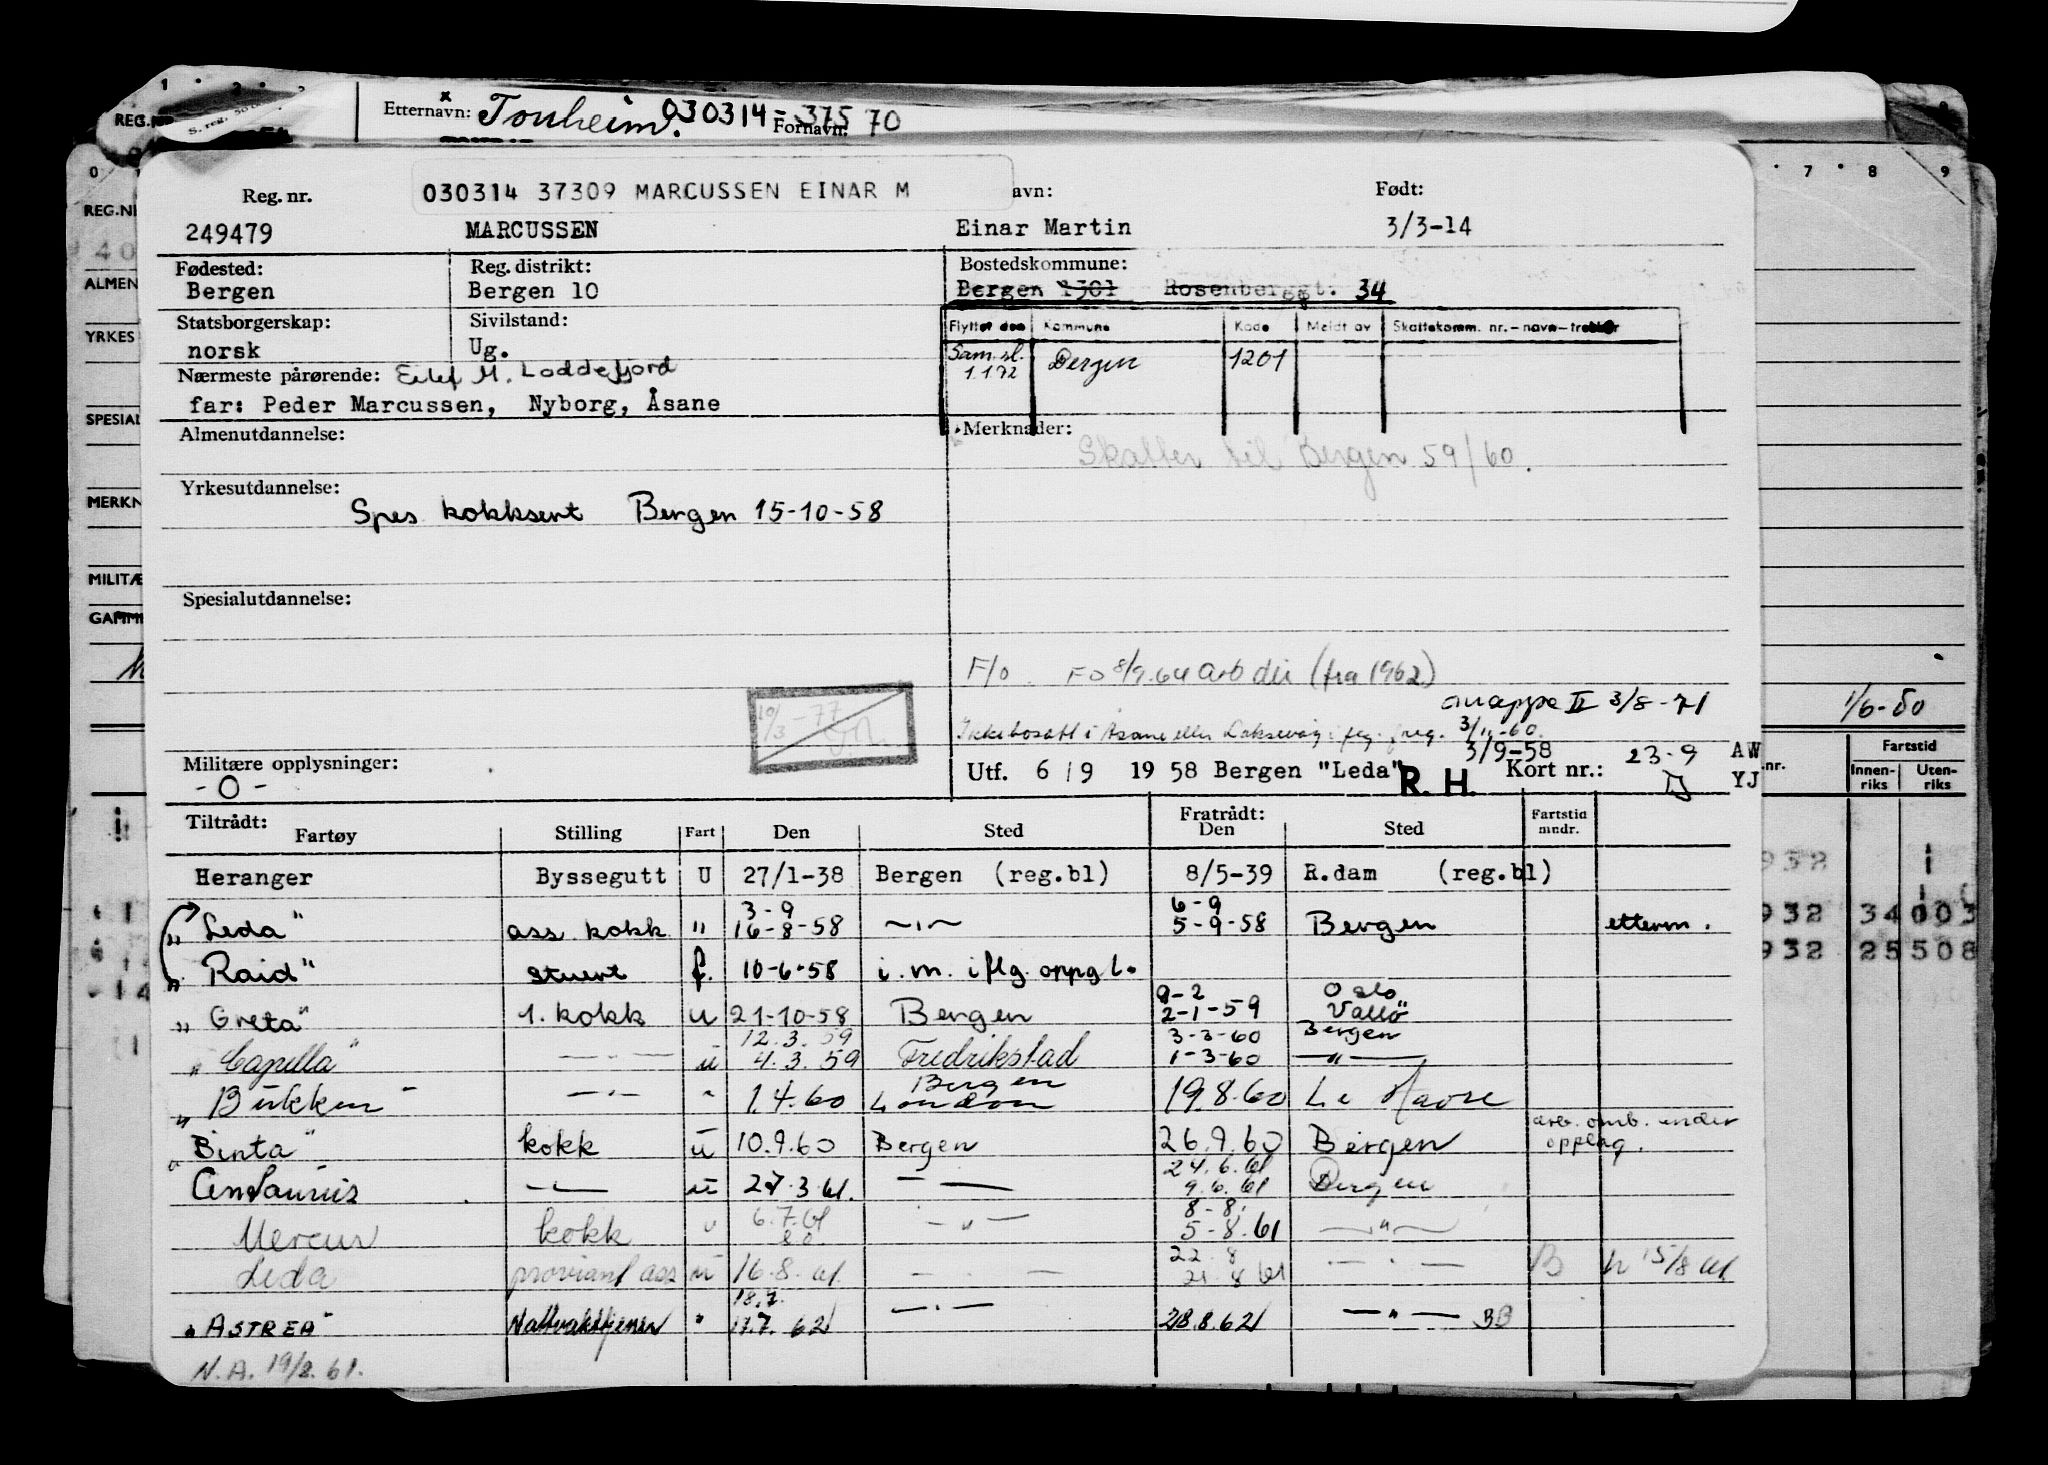 1 2
REG.NR
S. reg.
Etternavn: x Tonheim. 030314 = 37570
Fornavn:
0 7 8 9
REG.NR
40
ALMEN
YRKES
SPESIAL
MERKN
MILITÆ
GAMM
Reg. nr. 030314 37309 MARCUSSEN EINAR M avn: Født:
249479 MARCUSSEN Einar Martin 3/3-14
Fødested: Reg. distrikt: Bostedskommune:
Bergen Bergen 10 Bergen 1301 Rosenberggt. 34
Statsborgerskap: Sivilstand: Flyttet den Kommune Kode Meldt av Skattekomm. nr. – navn – trekker
norsk Ug. Sam.sl. 1.1.72 Bergen 1201
Nærmeste pårørende: Eilef M. Loddefjord
far: Peder Marcussen, Nyborg, Åsane
Almenutdannelse: Merknader:
Skatter til Bergen 59/60.
Yrkesutdannelse:
Spes kokksert Bergen 15-10-58
Spesialutdannelse:
F/o. FO 8/9.64 arb dir (fra 1962)
mappe II 3/8-71 1/6-80
10/3-77
Ikke bosatt i Åsane eller Laksevåg 3/11-60.
3/9-58
Militære opplysninger: Utf. 6/9 1958 Bergen "Leda" R. H. Kort nr.: 23-9 AW
- O - YJ
nr. Fartstid
Innen-riks Uten-riks
Tiltrådt: Fratrådt: Fartstid mndr.
Fartøy Stilling Fart Den Sted Den Sted
Heranger Byssegutt U 27/1-38 Bergen (reg.bl) 8/5-39 R.dam (reg.bl)
932
3-9 6-9
"Leda" ass. kokk " 16-8-58 —"— 5-9-58 Bergen etterm.
932 34 003
"Raid" stuert f. 10-6-58 i.m. iflg. oppg l.
932 25 508
9-2 Oslo
"Greta" 1. kokk u 21-10-58 Bergen 2-1-59 Vallö
12.3.59 3-3-60 Bergen
"Capella" —"— u 4.3.59 Fredrikstad 1-3-60 —"—
Bergen
"Bukken" —"— " 1.4.60 London 19.8.60 Le Havre
"Binta" kokk u 10.9.60 Bergen 26.9.60 Bergen arb. omb. under opplag.
24.6.61
Centaurus —"— u 27.3.61. —"— 9.6.61 Bergen
6.7.61 8-8.
Mercur kokk " —"— 5-8.61 —"—
22.8
Leda proviant ass u 16.8.61. —"— 21.8.61 —"— B h 15/8 61
18.7.
"ASTREA" Nattvakttjener " 17.7.62 —"— 28.8.62 —"— BB
N.A. 19/8.61.